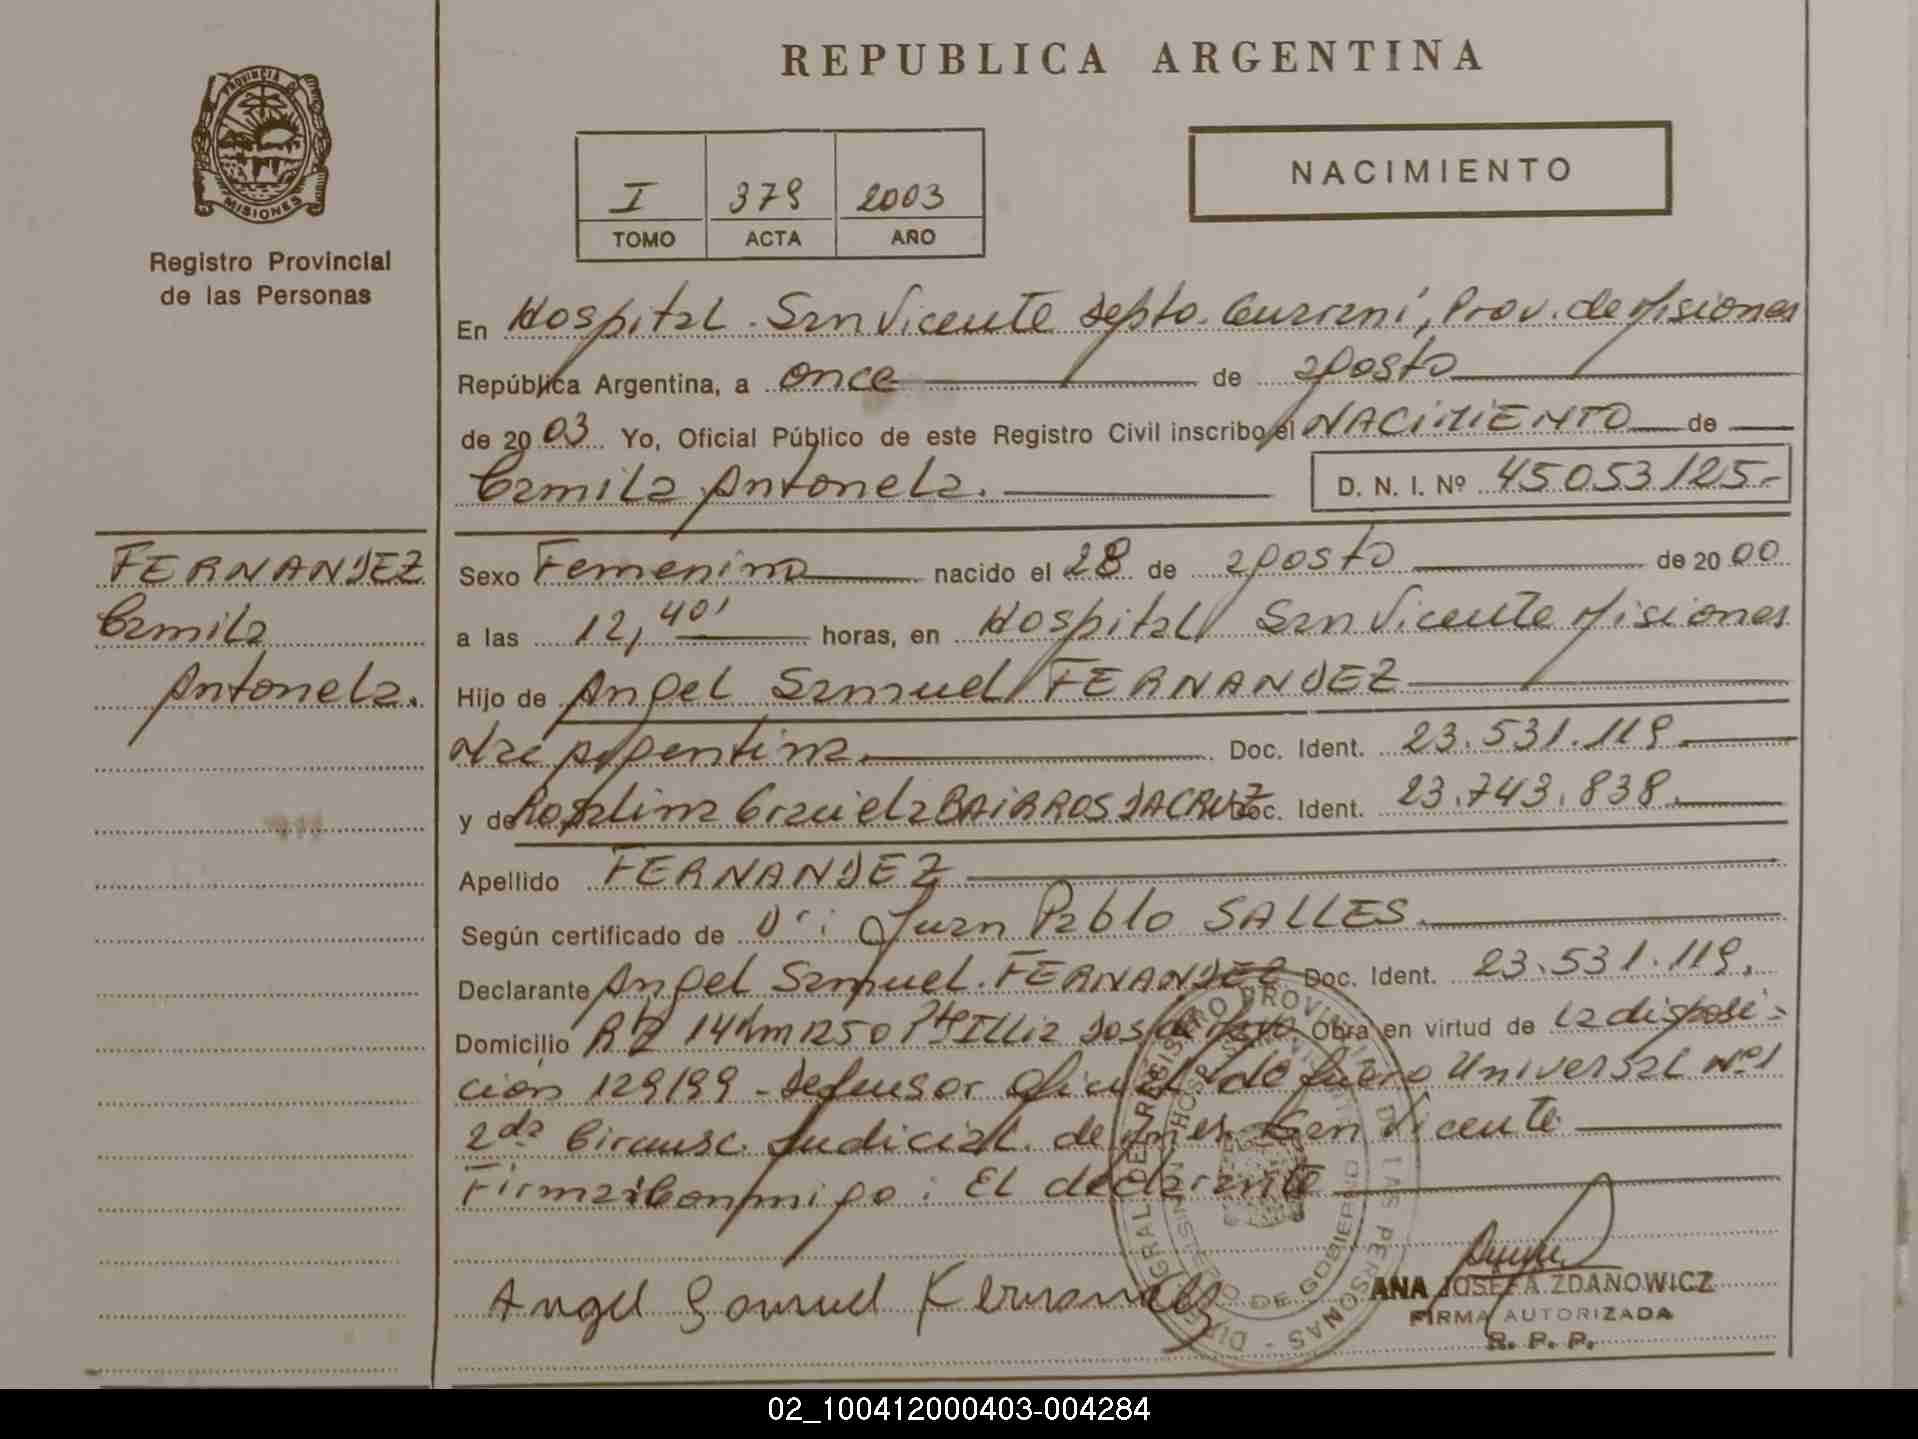 REPUBLICA ARGENTINA
PROVINCIA DE
MISIONES
Registro Provincial
de las Personas
I 379 2003
TOMO ACTA AÑO
NACIMIENTO
En Hospital San Vicente Depto. Guaraní, Prov. de Misiones
República Argentina, a once de agosto
de 2003 Yo, Oficial Público de este Registro Civil inscribo el NACIMIENTO de
Camila Antonela. D. N. I. Nº 45053125.-
FERNANDEZ
Camila
Antonela.
Sexo Femenino nacido el 28 de agosto de 2000
a las 12,40' horas, en Hospital San Vicente Misiones
Hijo de Angel Samuel FERNANDEZ
Argentina. Doc. Ident. 23.531.119
y de Rosalina Graciela BAIRROS DACRUZ Doc. Ident. 23.743.838.
Apellido FERNANDEZ
Según certificado de Dr: Juan Pablo SALLES.
Declarante Angel Samuel FERNANDEZ Doc. Ident. 23.531.119.
Domicilio 1250 Dos de Mayo Obra en virtud de la disposi-
ción 129/99 - Defensor Oficial de fuero Universal Nº1
2da Circunsc. Judicial. de San Vicente
Firma conmigo: El declarante
Angel Samuel Fernandez
ANA JOSEFA ZDANOWICZ
FIRMA AUTORIZADA
R. P. P.
DIREC. GRAL. DE REGISTRO PROVINCIAL DE LAS PERSONAS
MINISTERIO DE GOBIERNO
02_100412000403-004284